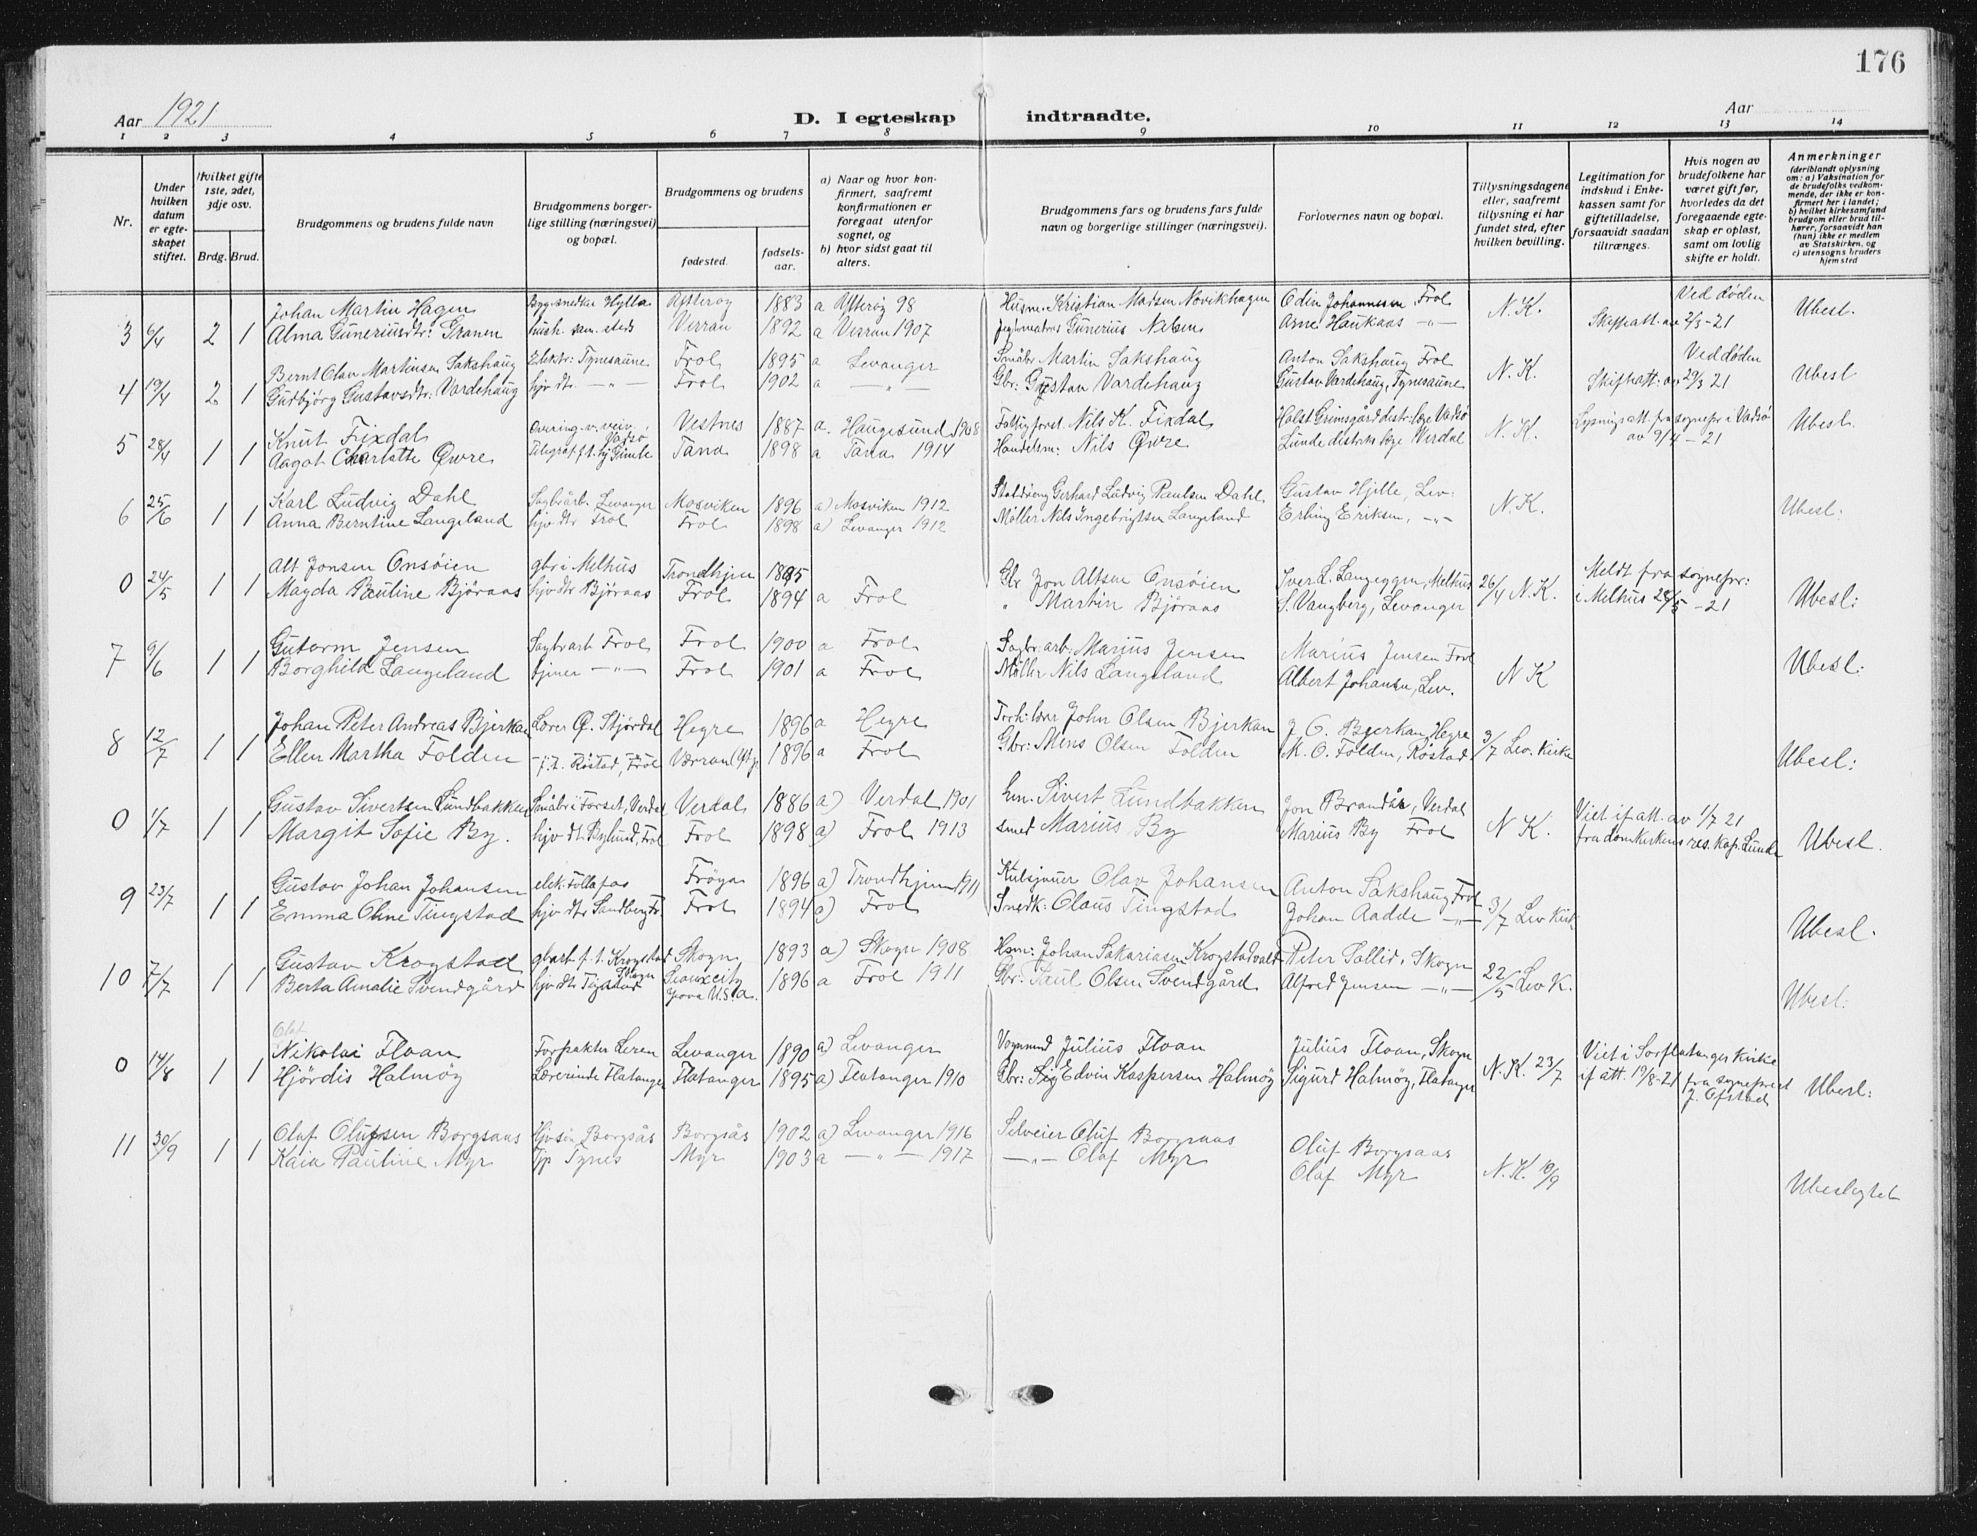 176
Aar 1921
D. I egteskap indtraadte.
Aar
1 2 3 4 5 6 7 8 9 10 11 12 13 14
Nr.
Under hvilken datum er egteskapet stiftet.
Hvilket gifte 1ste, 2det, 3dje osv.
Brdg. Brud.
Brudgommens og brudens fulde navn
Brudgommens borgerlige stilling (næringsvei) og bopæl.
Brudgommens og brudens
fødested.
fødselsaar.
a) Naar og hvor konfirmert, saafremt konfirmationen er foregaat utenfor sognet, og
b) hvor sidst gaat til alters.
Brudgommens fars og brudens fars fulde navn og borgerlige stillinger (næringsvei).
Forlovernes navn og bopæl.
Tillysningsdagene eller, saafremt tillysning ei har fundet sted, efter hvilken bevilling.
Legitimation for indskud i Enkekassen samt for giftetilladelse, forsaavidt saadan tiltrænges.
Hvis nogen av brudefolkene har været gift før, hvorledes da det foregaaende egteskap er opløst, samt om lovlig skifte er holdt.
Anmerkninger (deriblandt oplysning om: a) Vaksination for de brudefolks vedkommende, der ikke er konfirmert her i landet; b) hvilket kirkesamfund brudgom eller brud tilhører, forsaavidt han (hun) ikke er medlem av Statskirken, og c) utensogns bruders hjemsted
Johan Martin Hagen Bygsnedker Hylla Ytterøy 1883 a Ytterøy 98 Husm. Kristian Madsen Nøvikhagen Odin Johannesen Frol N. K. Ved døden Ubesl.
3 6/4 2 1 Alma Guneriusdtr: Granen hush. sam. steds Verran 1892 a Verran 1907 Gunerius Arne Haukaas -"- Skifteatt. av 2/3-21
Bernt Olav Martinsen Sakshaug Elektr: Tynesaune Frol 1895 a Levanger Småbr Martin Sakshaug Anton Sakshaug Frol N. K. Ved døden Ubesl
4 19/4 2 1 Gudbjørg Gustavsdtr: Vardehaug hjv dtr. -"- Frol 1902 a -"- Gbr: Gustav Vardehaug Gustav Vardehaug, Tynesaune Skifteatt: av 29/3 21
Knut Fixdal v. veiv. Vadsø Vestnes 1887 a. Haugesund 1908 Nils K. Fixdal Halst Grimsgård distr. læge Vadsø N. K. Lysnings att. fra sognepr i Vadsø Ubesl.
5 28/4 1 1 Aagot Charlotte Øvre Telegraf f. t. Tana 1898 a Tana 1914 Handelsm: Nils Øvre Lunde distrikts læge Verdal av 9/4-21
Karl Ludvig Dahl Sagbr.arb. Levanger Mosviken 1896 a) Mosviken 1912 Gerhard Ludvig Paulsen Dahl Gustav Hjelle, Lev. N. K. Ubesl:
6 25/6 1 1 Anna Berntine Langeland hjv dtr Frol Frol 1898 a) Levanger 1912 Møller Nils Ingebrigtsen Langeland Erling Eriksen, -"-
Alt Jonsen Onsøien gbr i Melhus Trondhjem 1895 Gbr Jon Altsen Onsøien Iver L. Langeggen, Melhus 26/4 N. K. Meldt fra sognepr: Ubesl:
0 24/5 1 1 Magda Pauline Bjøraas hjv dtr Bjøraas Frol 1894 a Frol " Martin Bjøraas S. Vangberg, Levanger i Melhus 28/5-21
Gutorm Jensen Sagbr.arb Frol Frol 1900 a Frol Sagbr: arb: Marius Jensen Marius Jensen Frol N K Ubesl:
7 9/6 1 1 Borghild Langeland tjener -"- Frol 1901 a Frol Møller Nils Langeland Albert Johansen, Lev.
Johan Peter Andreas Bjerkan Lærer Ø. Stjørdal Hegre 1896 a Hegre John Olsen Bjerkan J. O. Bjerkan, Hegre 3/7 Lev. kirke Ubesl:
8 12/7 1 1 Ellen Martha Folden -"- f. t. Røstad, Frol Verran 1896 a Frol Gbr: Mens Olsen Folden M. O. Folden, Røstad
Gustav Sivertsen Lundbakken Småbr i Forset, Verdal Verdal 1886 a) Verdal 1901 hm. Sivert Lundbakken Jon Brandås, Verdal N K. Viet if. att. av 1/7 21 Ubesl.
0 1/7 1 1 Margit Sofie By. hjv dtr. Bylund, Frol Frol 1898 a) Frol 1913 smed Marius By Marius By Frol fra domkirkens res. kap. Lunde
Gustav Johan Johansen elek: Follafos Frøya 1896 a) Trondhjem 1911 Kulsjouer Olav Johansen Anton Sakshaug Frol 3/7 Lev Kirk Ubesl.
9 23/7 1 1 Emma Oline Tingstad hjv dtr Sandberg Fr. Frol 1894 a) Frol Snedk: Olaus Tingstad Johan Aadde -"-
Gustav Krogstad gbarb f. t. Krogstad Skogn Skogn 1893 a) Skogn 1908 Hsm: Johan Sakariasen Krogstadvald Peter Sollid, Skogn 22/5 Lev K. Ubesl:
10 7/7 1 1 Berta Amalie Svendgård hjv dtr Siouxcity Iova U.S.A. 1896 a Frol 1911 Gbr: Paul Olsen Svendgård Alfred Jensen -"-
Olaf
Nikolai Floan Forpakter Leren Levanger 1890 a) Levanger Vognmd Julius Floan Julius Floan, Skogn N. K. 23/7 Viet i Sørflatanger kirke Ubesl:
0 14/8 1 1 Hjørdis Halmøy Lærerinde Flatanger Flatanger 1895 a) Flatanger 1910 Gbr: Edvin Kaspersen Halmøy Sigurd Halmøy, Flatanger if att. 19/8-21 fra sogneprest J. Ofstad
Olaf Olufsen Borgsaas Hjvsøn Borgsås Borgsås 1902 a) Levanger 1916 Selveier Oluf Borgsaas Oluf Borgsaas N. K. 10/9 Ubeslegtet
11 30/9 1 1 Kaia Pauline Myr Tjp Tynes Myr 1903 a -"- 1917 -"- Olaf Myr Olaf Myr